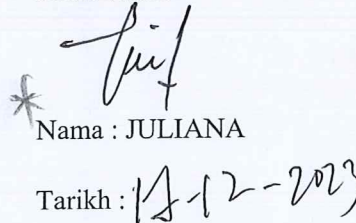 Nama : JULIANA
Tarikh : -12-2023